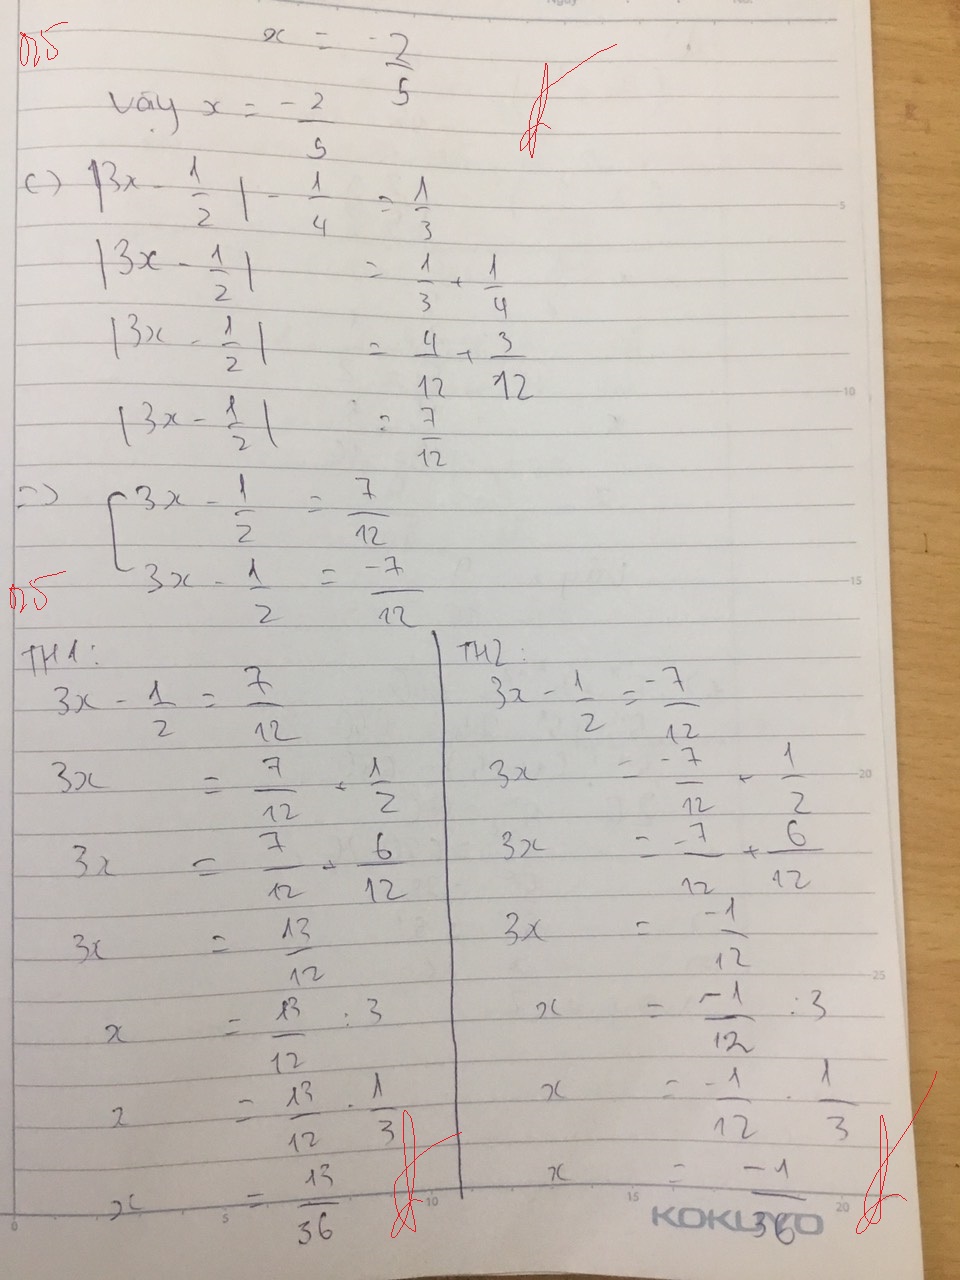 0,25
x = -2/5
Vậy x = -2/5
c) |3x - 1/2| - 1/4 = 1/3
|3x - 1/2| = 1/3 + 1/4
|3x - 1/2| = 4/12 + 3/12
|3x - 1/2| = 7/12
=> [ 3x - 1/2 = 7/12
3x - 1/2 = -7/12
0,25
TH1:
3x - 1/2 = 7/12
3x = 7/12 + 1/2
3x = 7/12 + 6/12
3x = 13/12
x = 13/12 : 3
x = 13/12 . 1/3
x = 13/36
TH2:
3x - 1/2 = -7/12
3x = -7/12 + 1/2
3x = -7/12 + 6/12
3x = -1/12
x = -1/12 : 3
x = -1/12 . 1/3
x = -1/36
5
10
15
20
25
0 5 10 15 20
KOKUYO